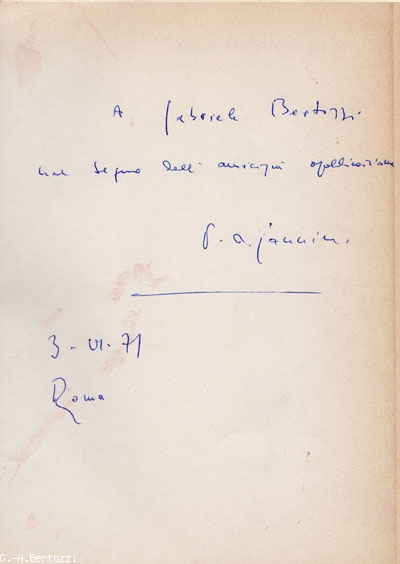 A Gabriele Bertozzi
nel segno dell'amicizia apollinairiana
P. A. Jannini.
3-VI-71
Roma
G.-A.Bertozzi